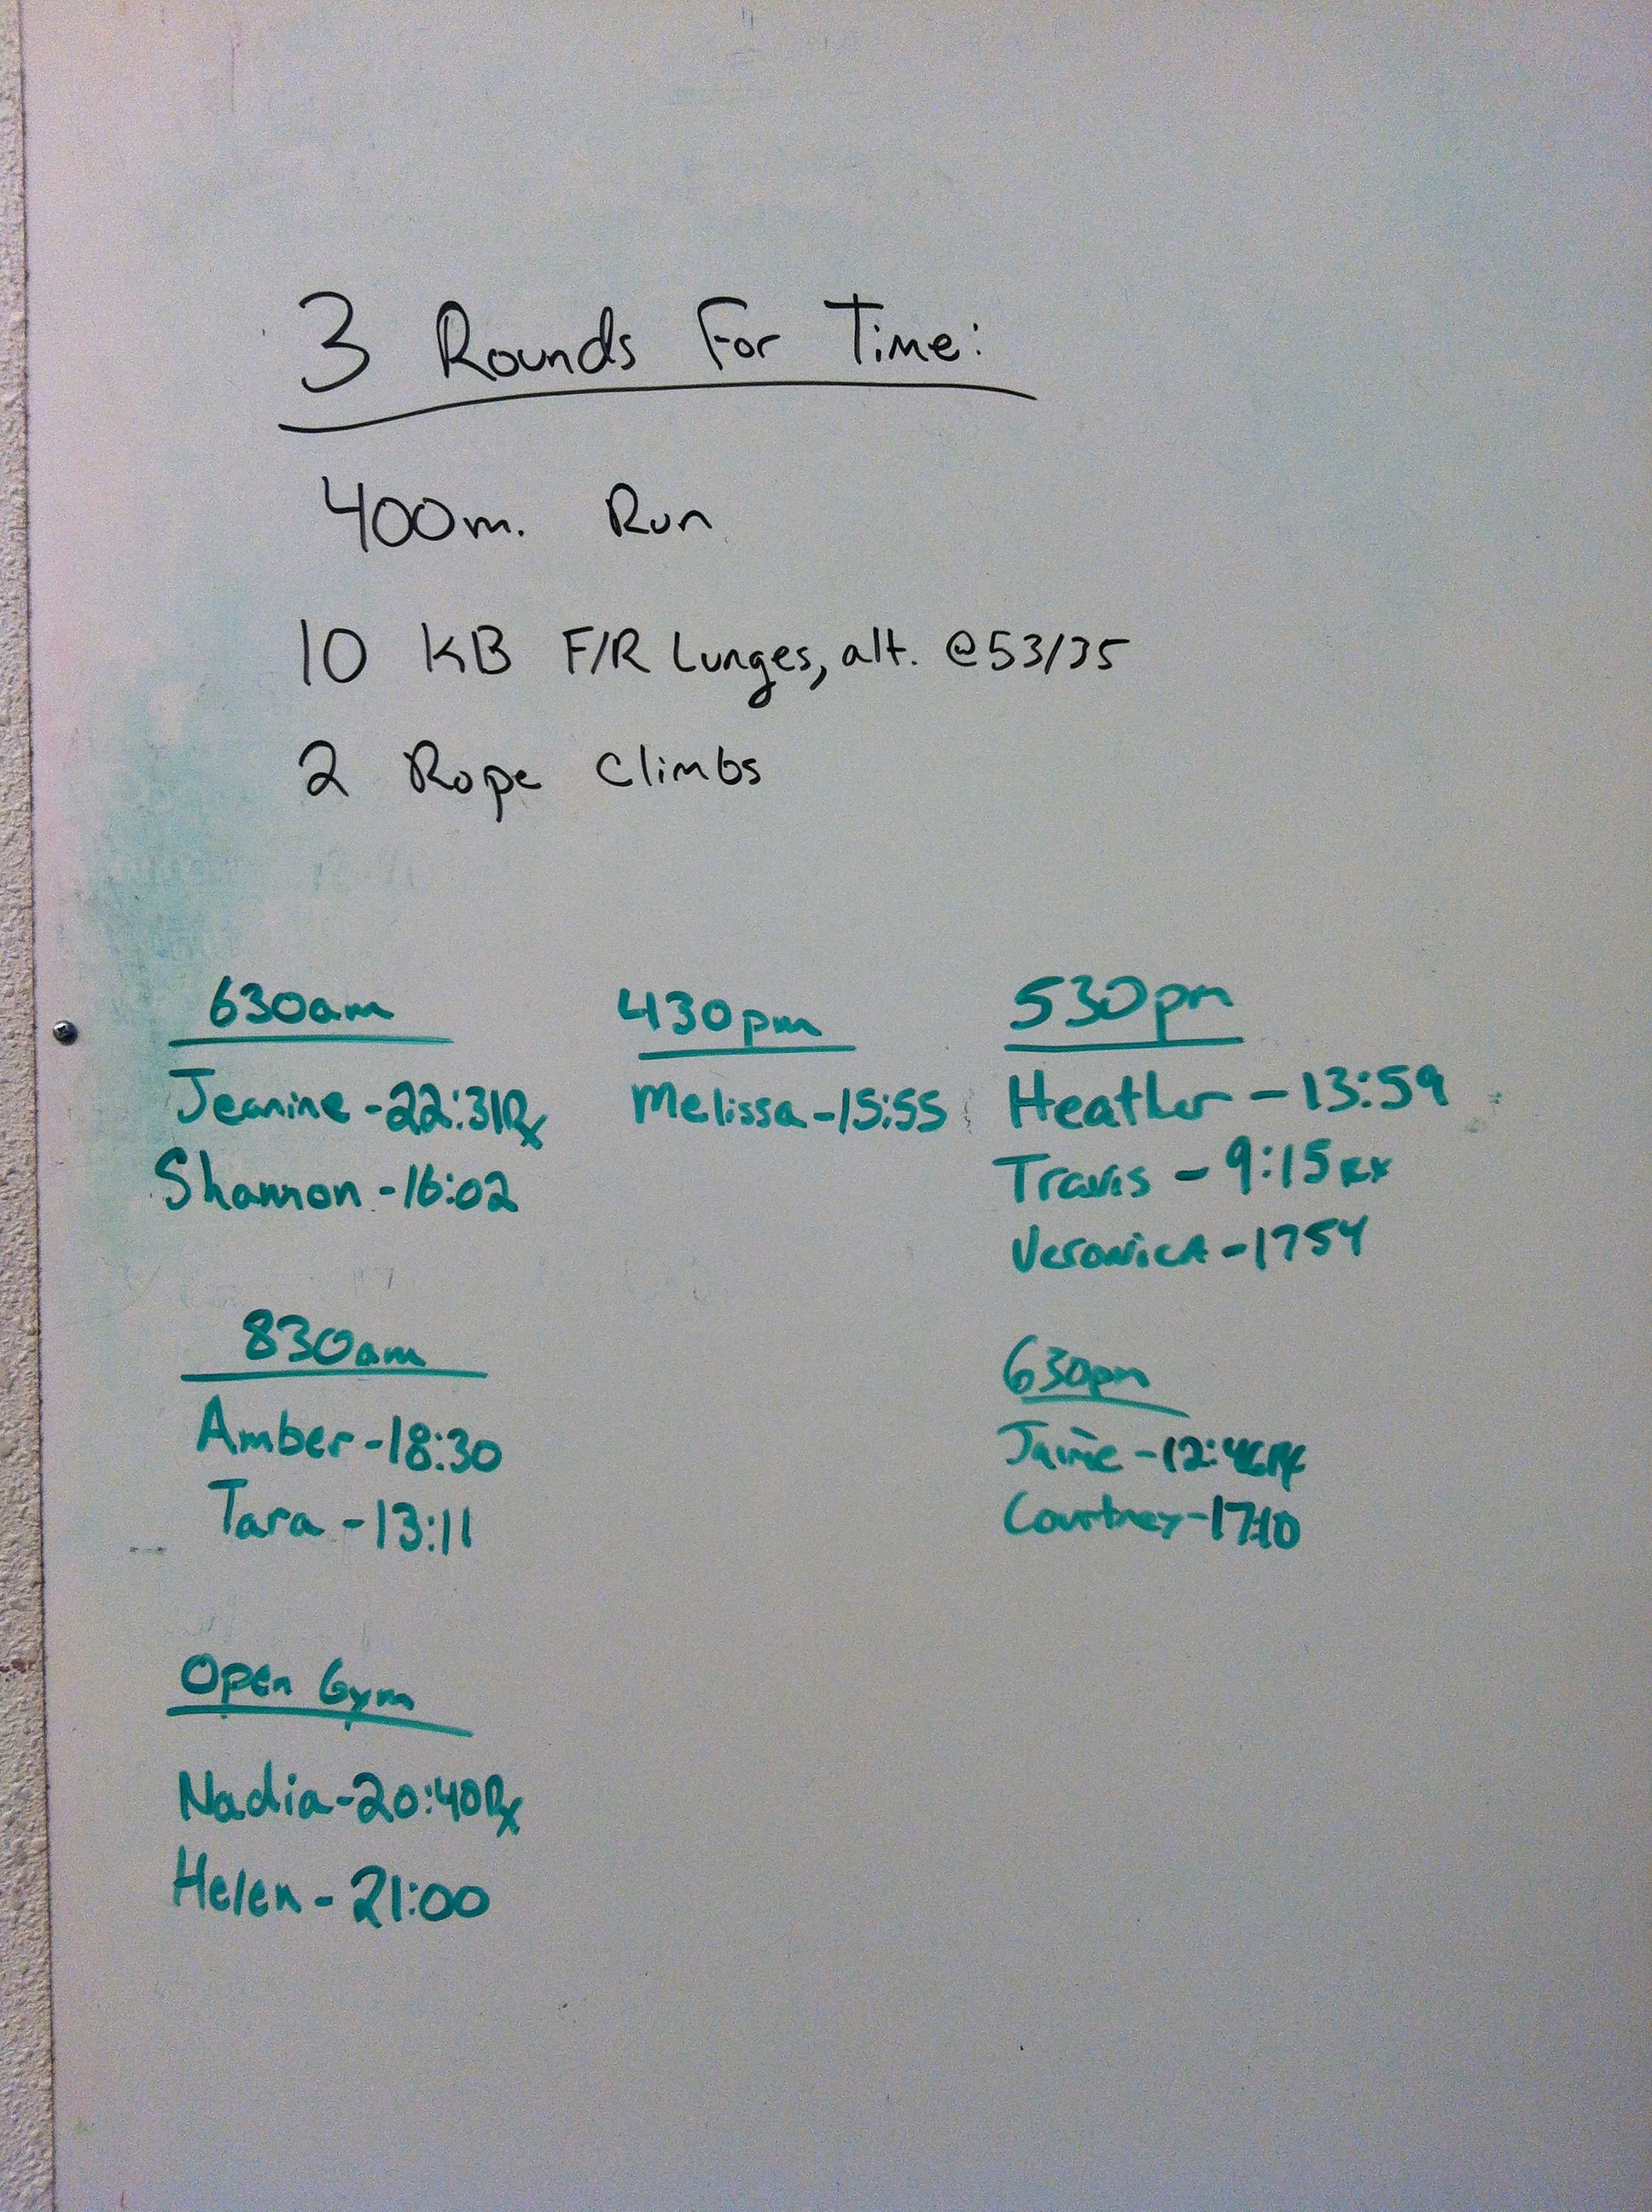 3 Rounds For Time:
400m. Run
10 KB F/R Lunges, alt. @53/35
2 Rope Climbs
630am
Jeanine -22:31Rx
Shannon -16:02
830am
Amber -18:30
Tara -13:11
Open Gym
Nadia -20:40Rx
Helen - 21:00
430pm
Melissa -15:55
530pm
Heather - 13:59
Travis - 9:15 Rx
Veronica -1754
630pm
Jaime -12:46Rx
Courtney -17:10